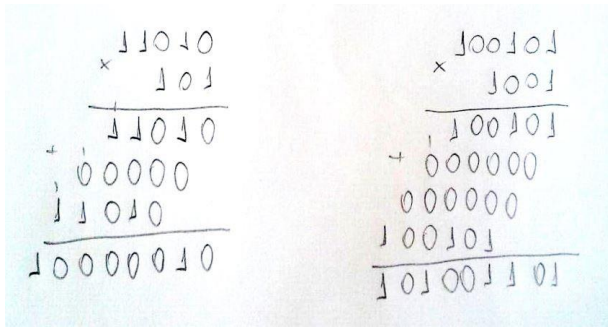 11010
×
101
11010
+
00000
11010
10000010
100101
×
1001
100101
+
000000
000000
100101
101001101